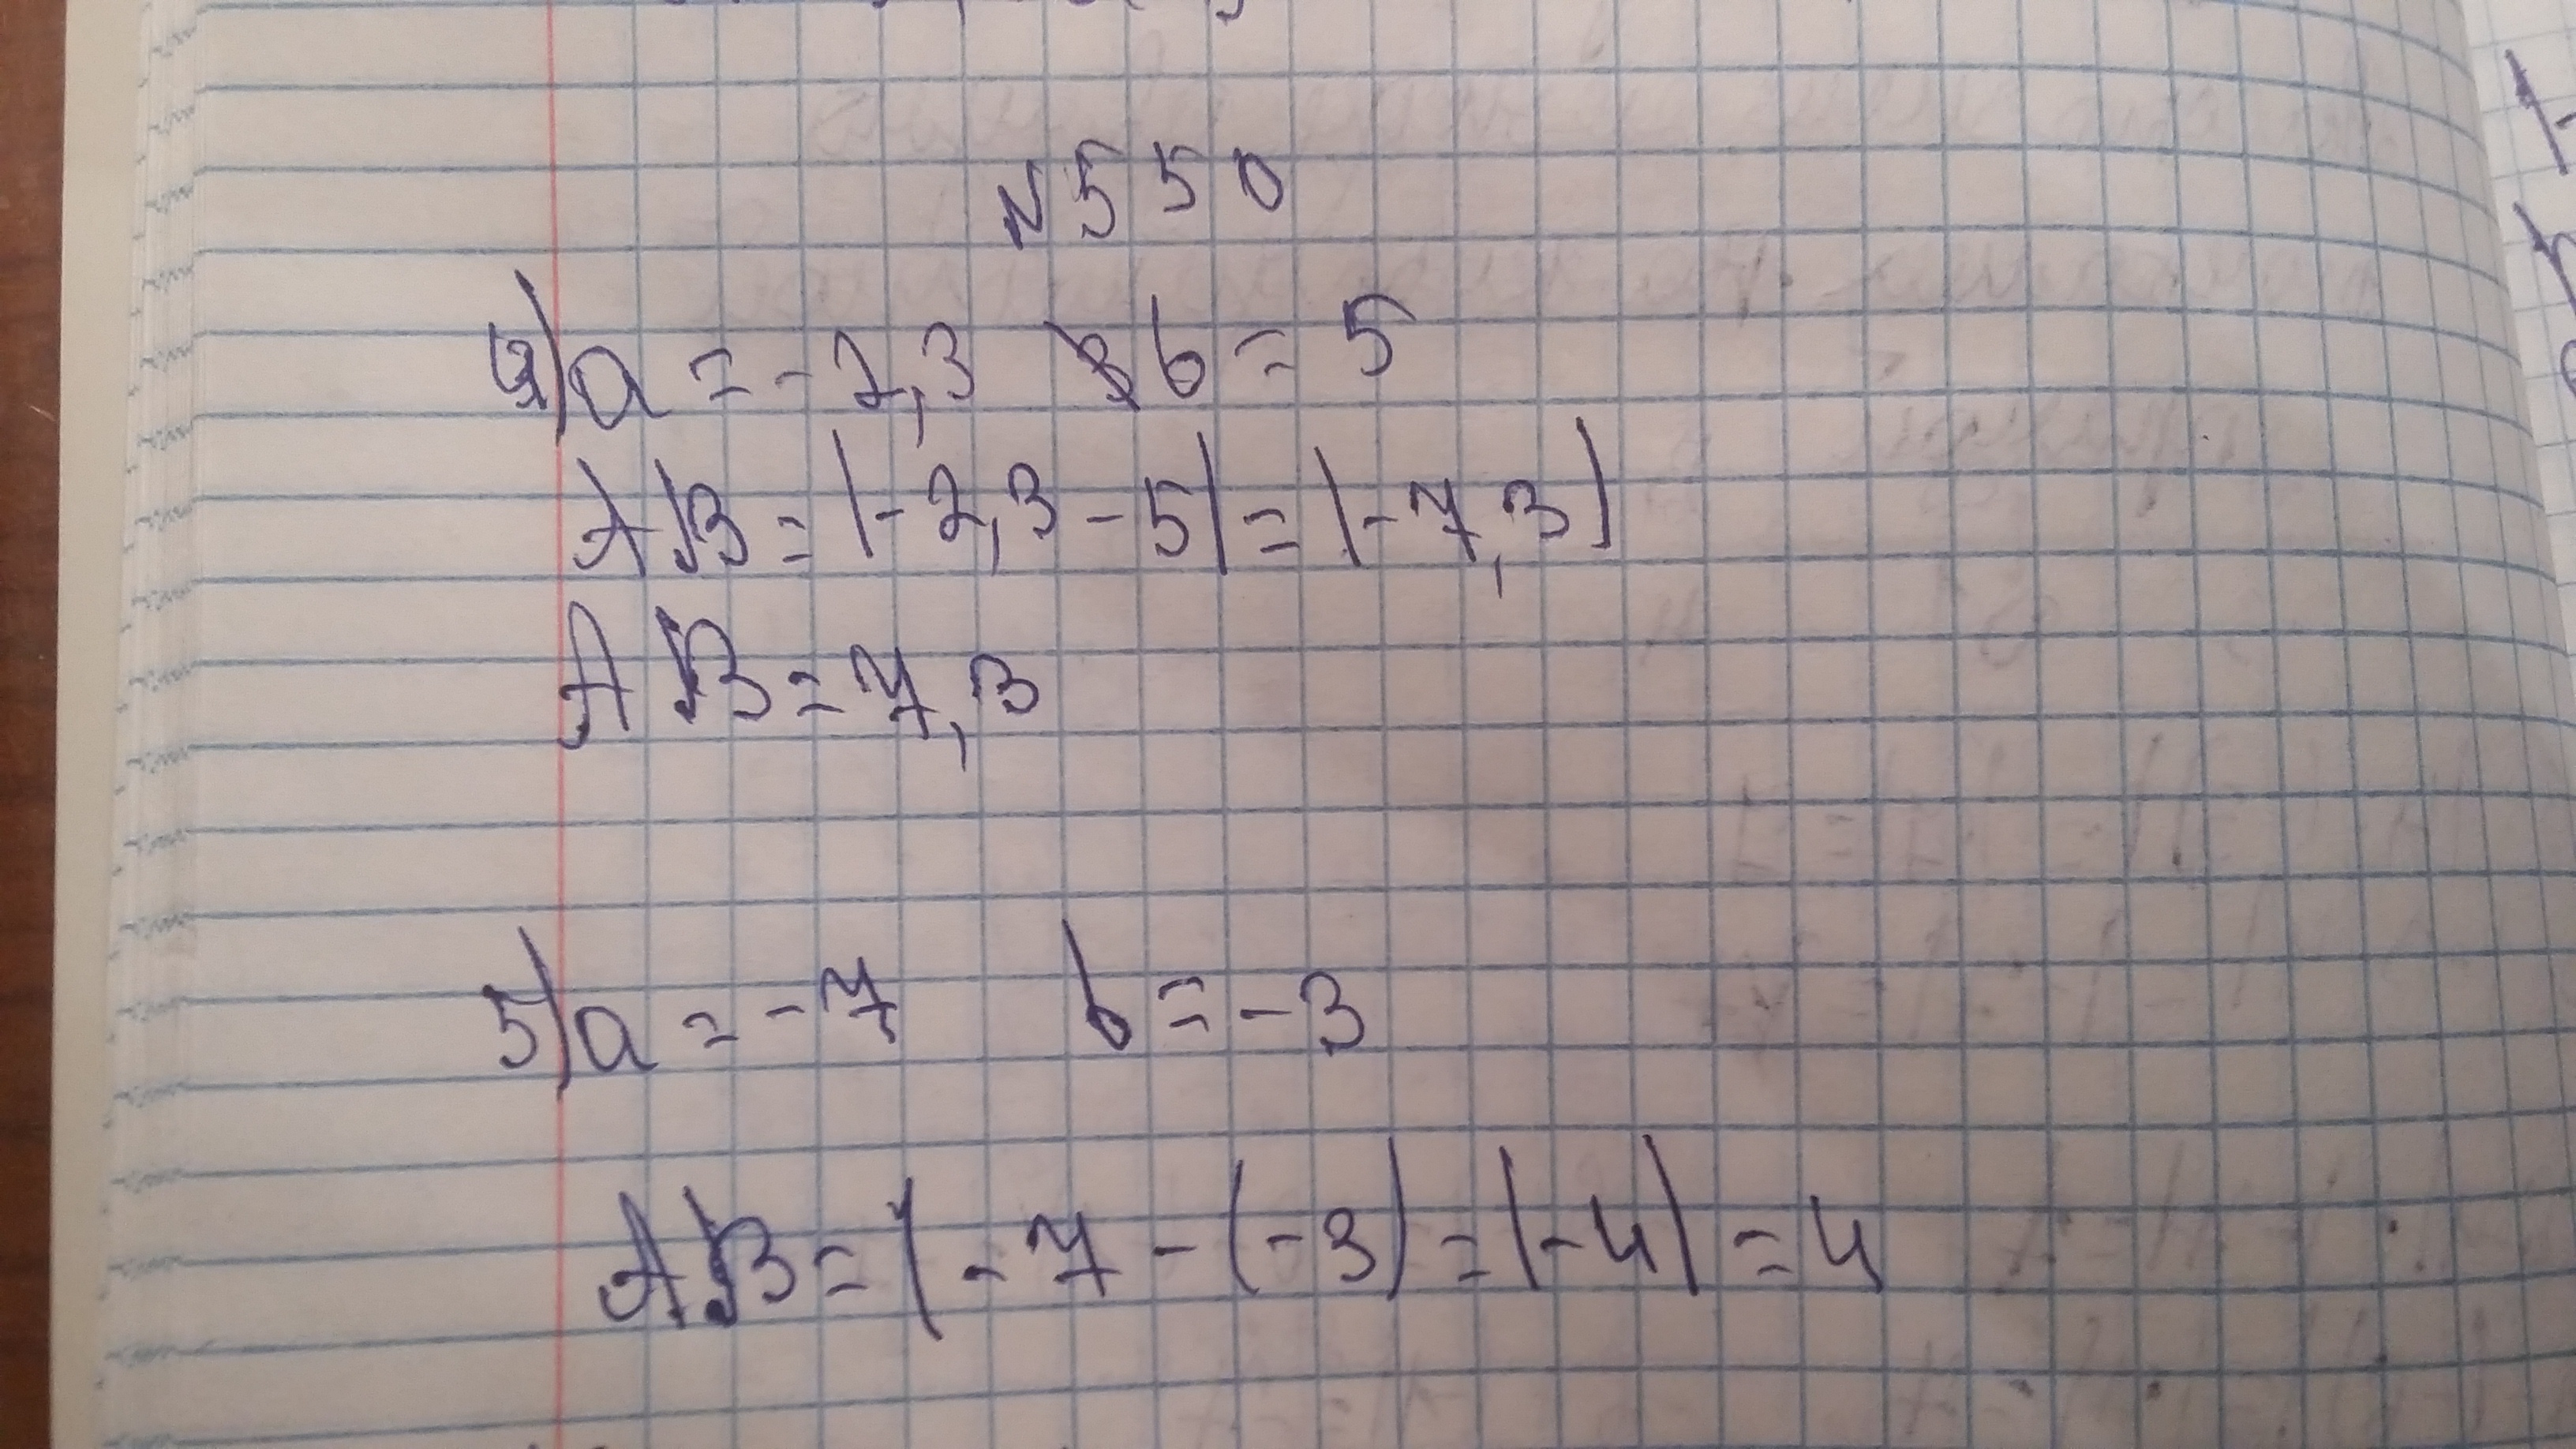 N 550
4) a = -2,3 b = 5
AB = |-2,3 - 5| = |-7,3|
AB = 7,3
5) a = -7 b = -3
AB = |-7 - (-3) = |-4| = 4